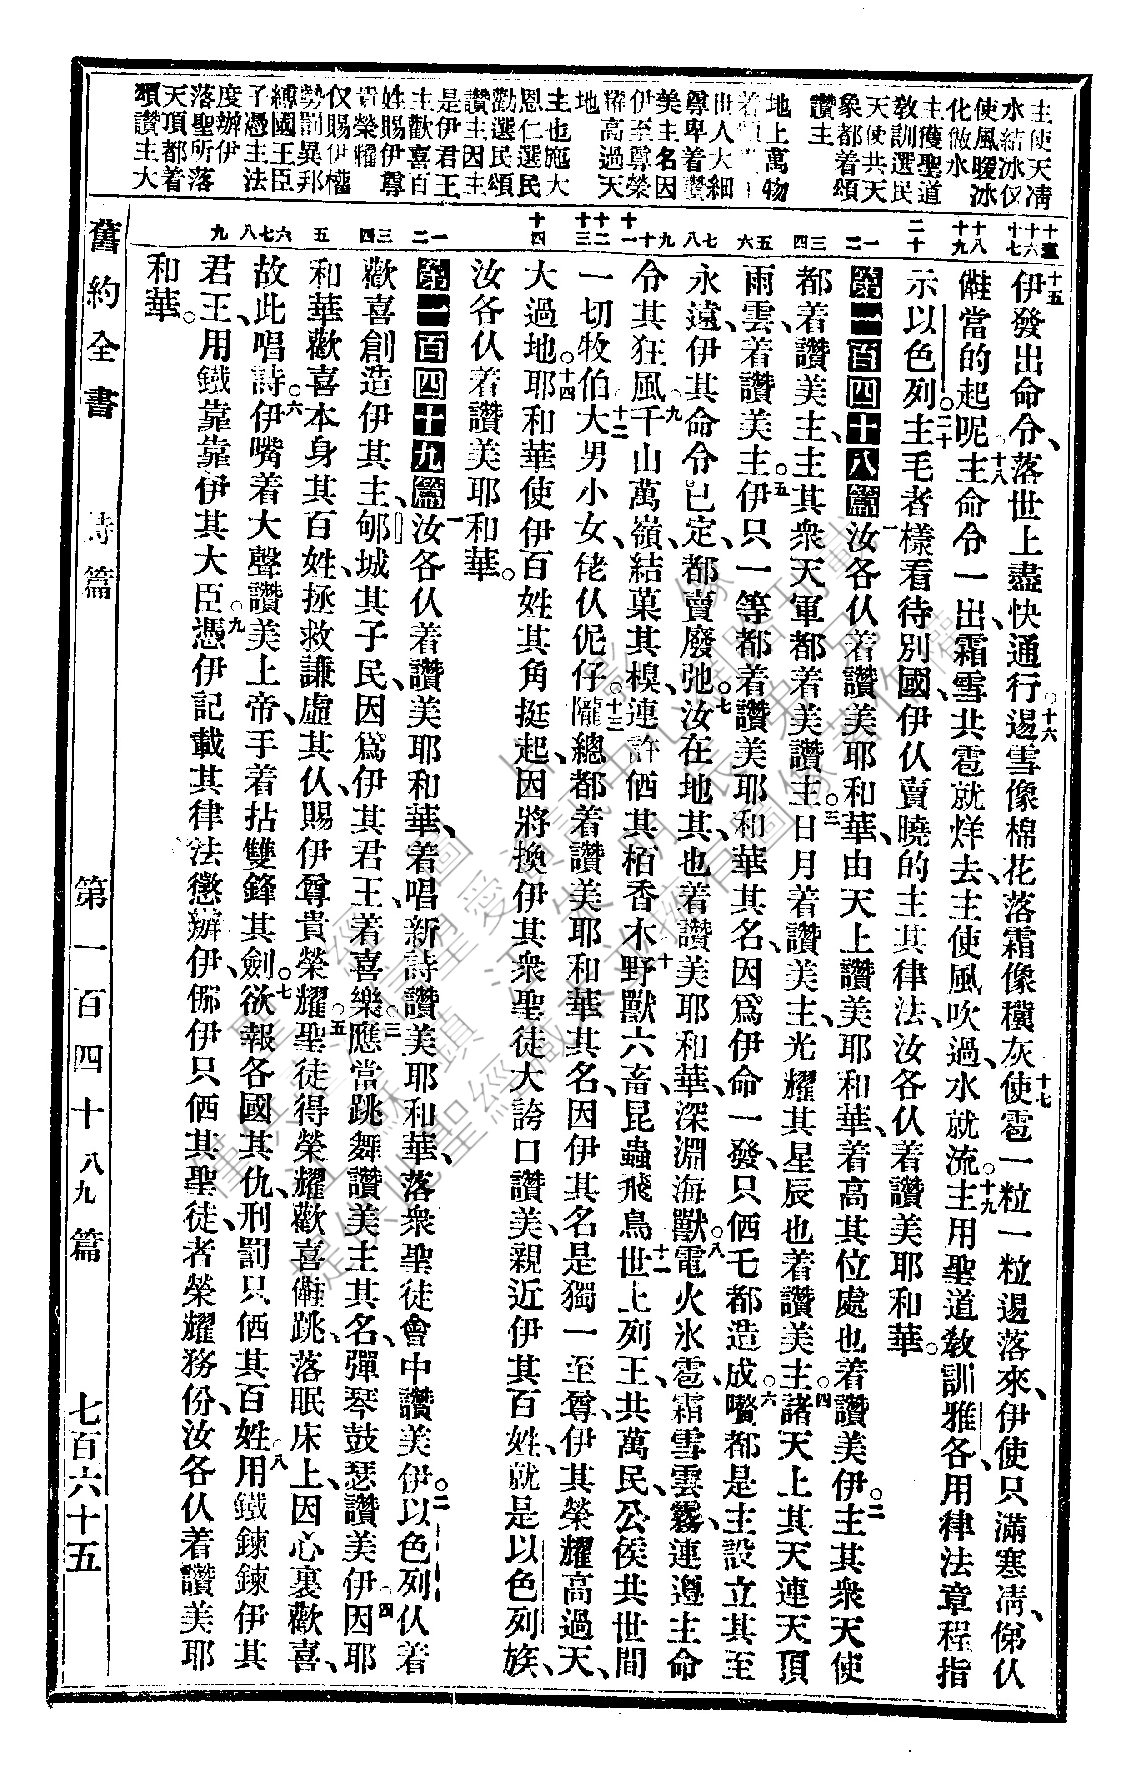 主使天凊
水結冰仅
使風暖冰
化做水
主獲聖道
敎訓選民
天使共天
象都着頌
讚主
地上萬物
世人大細
尊卑着讚
美主名因
伊至尊榮
耀高過天
地
主也施大
恩仁選民
勸選民頌
讚主因主
是伊君王
主歡喜百
姓賜伊尊
貴榮耀
仅賜伊權
勢罰異邦
縛國王臣
子憑主法
度辦伊
落聖所落
天頂都着
頌讚主大
十五 伊發出命令、落世上盡快通行。十六 逷雪像棉花落霜像穬灰 十七 使雹一粒一粒逷落來、伊使只滿寒凊、俤仈
𠆧當的起呢 十八 主命令一出、霜雪共雹就烊去主使風吹過、水就流。十九 主用聖道敎訓雅各、用律法章程指
示以色列。二十 主毛者樣看待別國、伊仈賣曉的主其律法、汝各仈着讚美耶和華。
第一百四十八篇 一 汝各仈着讚美耶和華、由天上讚美耶和華、着高其位處也着讚美伊。二 主其衆天使
都着讚美主、主其衆天軍都着美讚主。三 日月着讚美主、光耀其星辰也着讚美主。四 諸天上其天連天頂
雨雲、着讚美主。五 伊只一等都着讚美耶和華其名、因爲伊命一發、只価乇都造成。六 嘴都是主設立其至
永遠、伊其命令已定、都賣廢弛。七 汝在地其、也着讚美耶和華、深淵海獸。八 電火氷雹、霜雪雲霧、連遵主命
令其狂風 九 千山萬嶺、結菓其樹、連許価其栢香木 十 野獸六畜、昆蟲飛鳥 十一 世上列王、共萬民、公侯共世間
一切牧伯 十二 大男小女、佬仈伲仔。十三 隴總都着讚美耶和華其名、因伊其名是獨一至尊、伊其榮耀高過天、
大過地。十四 耶和華使伊百姓其角挺起、因將換伊其衆聖徒大誇口讚美、親近伊其百姓、就是以色列族、
汝各仈着讚美耶和華。
第一百四十九篇 一 汝各仈着讚美耶和華、着唱新詩讚美耶和華、落衆聖徒會中讚美伊。二 以色列仈着
歡喜創造伊其主、郇城其子民因爲伊其君王、着喜樂。三 應當跳舞讚美主其名、彈琴鼓瑟讚美伊 四 因耶
和華歡喜本身其百姓、拯救謙虛其仈賜伊尊貴榮耀。五 聖徒得榮耀歡喜𠆧跳、落眠床上、因心裏歡喜、
故此唱詩。六 伊嘴着大聲讚美上帝、手着拈雙鋒其劍。七 欲報各國其仇、刑罰只価其百姓 八 用鐵鍊鍊伊其
君王、用鐵靠靠伊其大臣 九 憑伊記載其律法懲辦伊、㑚伊只価其聖徒者榮耀務份、汝各仈着讚美耶
和華。
舊約全書　詩篇　第一百四十八九篇　七百六十五